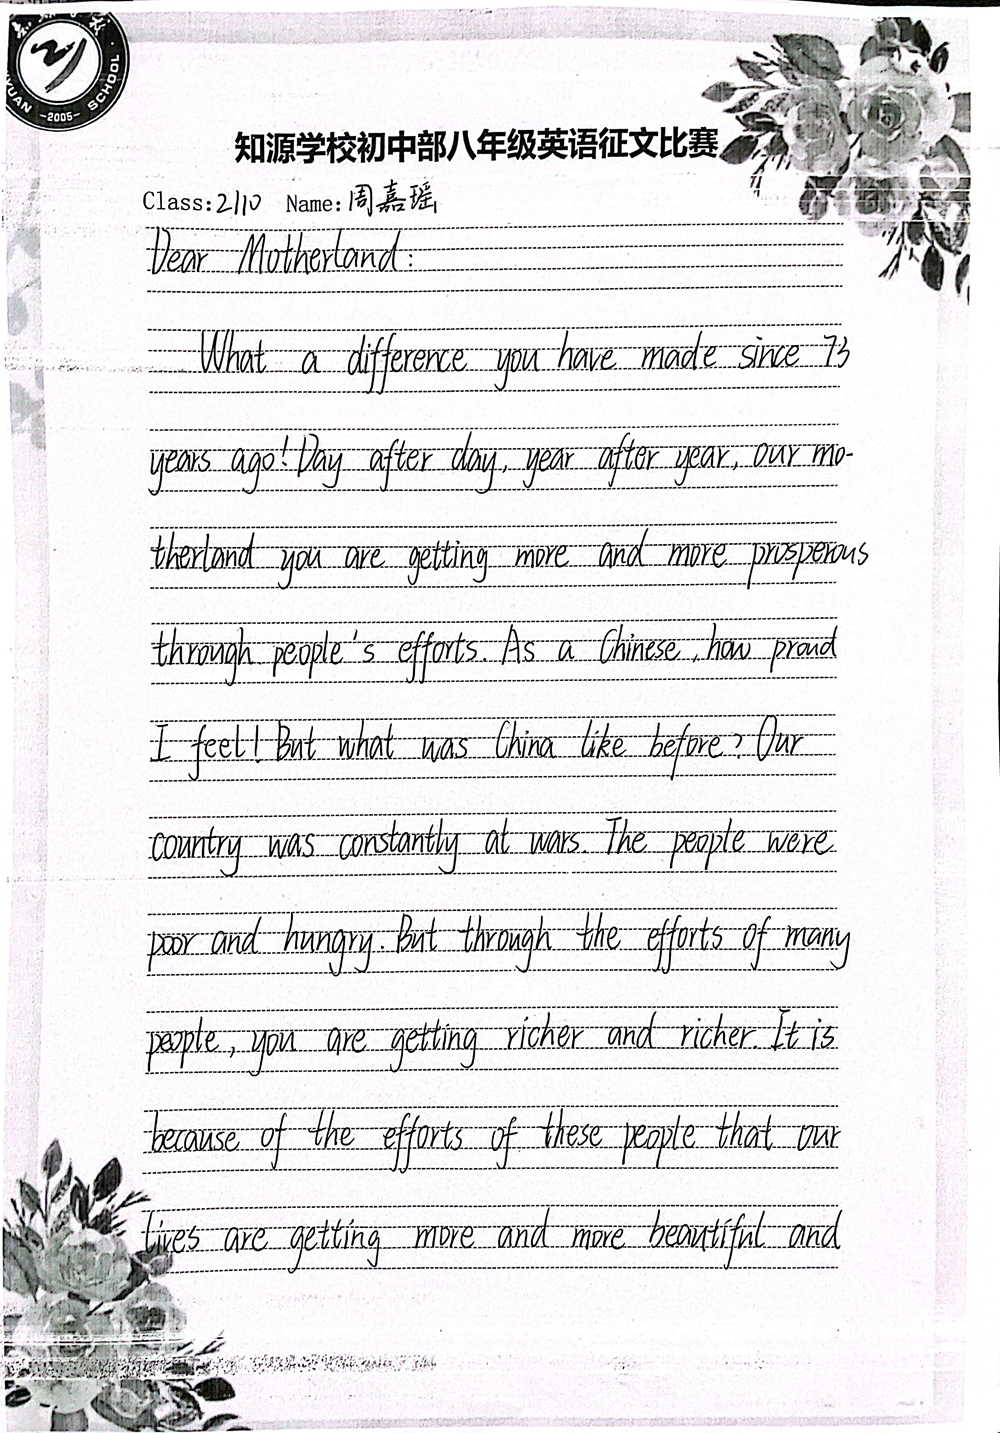 YUAN -2005- SCHOOL
知源学校初中部八年级英语征文比赛
Class:2110 Name:周嘉瑶
Dear Motherland:
What a difference you have made since 73
years ago! Day after day, year after year, our mo-
therland you are getting more and more prosperous
through people's efforts. As a Chinese, how proud
I feel! But what was China like before? Our
country was constantly at wars. The people were
poor and hungry. But through the efforts of many
people, you are getting richer and richer. It is
because of the efforts of these people that our
lives are getting more and more beautiful and